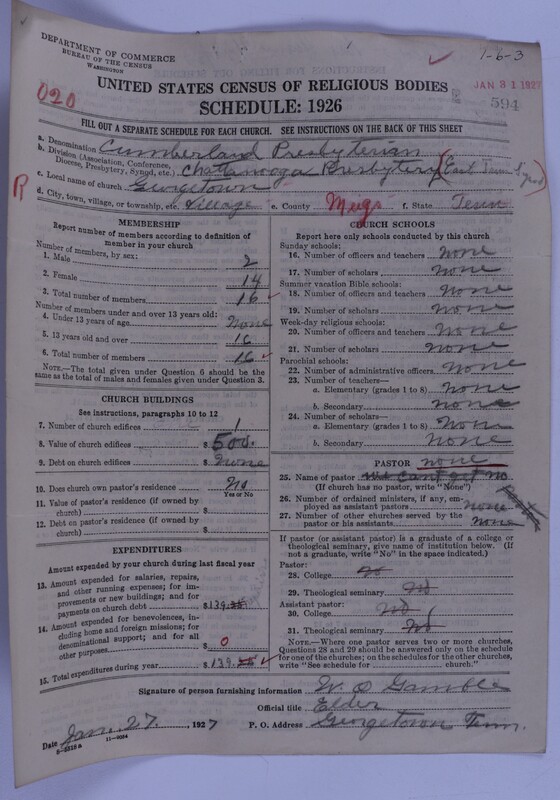 DEPARTMENT OF COMMERCE
BUREAU OF THE CENSUS
WASHINGTON
1-6-3
JAN 31 1927
594
020
UNITED STATES CENSUS OF RELIGIOUS BODIES
SCHEDULE: 1926
FILL OUT A SEPARATE SCHEDULE FOR EACH CHURCH. SEE INSTRUCTIONS ON THE BACK OF THIS SHEET
a. Denomination Cumberland Presbyterian
b. Division (Association, Conference, Diocese, Presbytery, Synod, etc.) Chattanooga Presbytery (East Tenn Synod)
R
c. Local name of church Georgetown
d. City, town, village, or township, etc. Village e. County Meigs f. State Tenn
MEMBERSHIP
Report number of members according to definition of member in your church
Number of members, by sex:
1. Male 2
2. Female 14
3. Total number of members 16
Number of members under and over 13 years old:
4. Under 13 years of age None
5. 13 years old and over 16
6. Total number of members 16
NOTE.—The total given under Question 6 should be the same as the total of males and females given under Question 3.
CHURCH BUILDINGS
See instructions, paragraphs 10 to 12
7. Number of church edifices 1
8. Value of church edifices $ 500.
9. Debt on church edifices $ None
10. Does church own pastor's residence? No
Yes or No
11. Value of pastor's residence (if owned by church) $
12. Debt on pastor's residence (if owned by church) $
EXPENDITURES
Amount expended by your church during last fiscal year
13. Amount expended for salaries, repairs, and other running expenses; for improvements or new buildings; and for payments on church debt $ 139.
14. Amount expended for benevolences, including home and foreign missions; for denominational support; and for all other purposes $ 0
15. Total expenditures during year $ 139.
CHURCH SCHOOLS
Report here only schools conducted by this church
Sunday schools:
16. Number of officers and teachers none
17. Number of scholars none
Summer vacation Bible schools:
18. Number of officers and teachers none
19. Number of scholars none
Week-day religious schools:
20. Number of officers and teachers none
21. Number of scholars none
Parochial schools:
22. Number of administrative officers none
23. Number of teachers—
a. Elementary (grades 1 to 8) none
b. Secondary none
24. Number of scholars—
a. Elementary (grades 1 to 8) none
b. Secondary none
PASTOR none
25. Name of pastor we cant get no
(If church has no pastor, write "None")
26. Number of ordained ministers, if any, employed as assistant pastors none
27. Number of other churches served by the pastor or his assistants none
If pastor (or assistant pastor) is a graduate of a college or theological seminary, give name of institution below. (If not a graduate, write "No" in the space indicated.)
Pastor:
28. College no
29. Theological seminary no
Assistant pastor:
30. College no
31. Theological seminary no
NOTE.—Where one pastor serves two or more churches, Questions 28 and 29 should be answered only on the schedule for one of the churches; on the schedules for the other churches, write "See schedule for church."
Signature of person furnishing information W. O Gamble
Official title Elder
Date Jan. 27, 1927 P. O. Address Georgetown Tenn.
8-2316a 11-9034